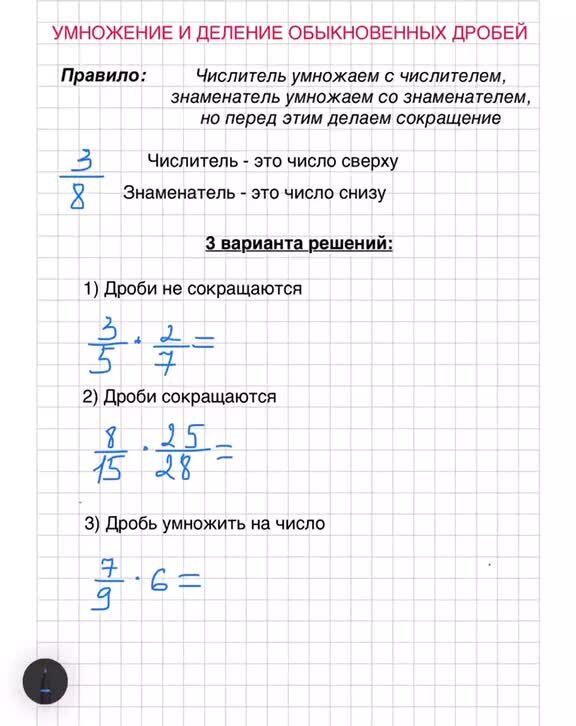 УМНОЖЕНИЕ И ДЕЛЕНИЕ ОБЫКНОВЕННЫХ ДРОБЕЙ
Правило: Числитель умножаем с числителем,
знаменатель умножаем со знаменателем,
но перед этим делаем сокращение
3/8
Числитель - это число сверху
Знаменатель - это число снизу
3 варианта решений:
1) Дроби не сокращаются
3/5 · 2/7 =
2) Дроби сокращаются
8/15 · 25/28 =
3) Дробь умножить на число
7/9 · 6 =